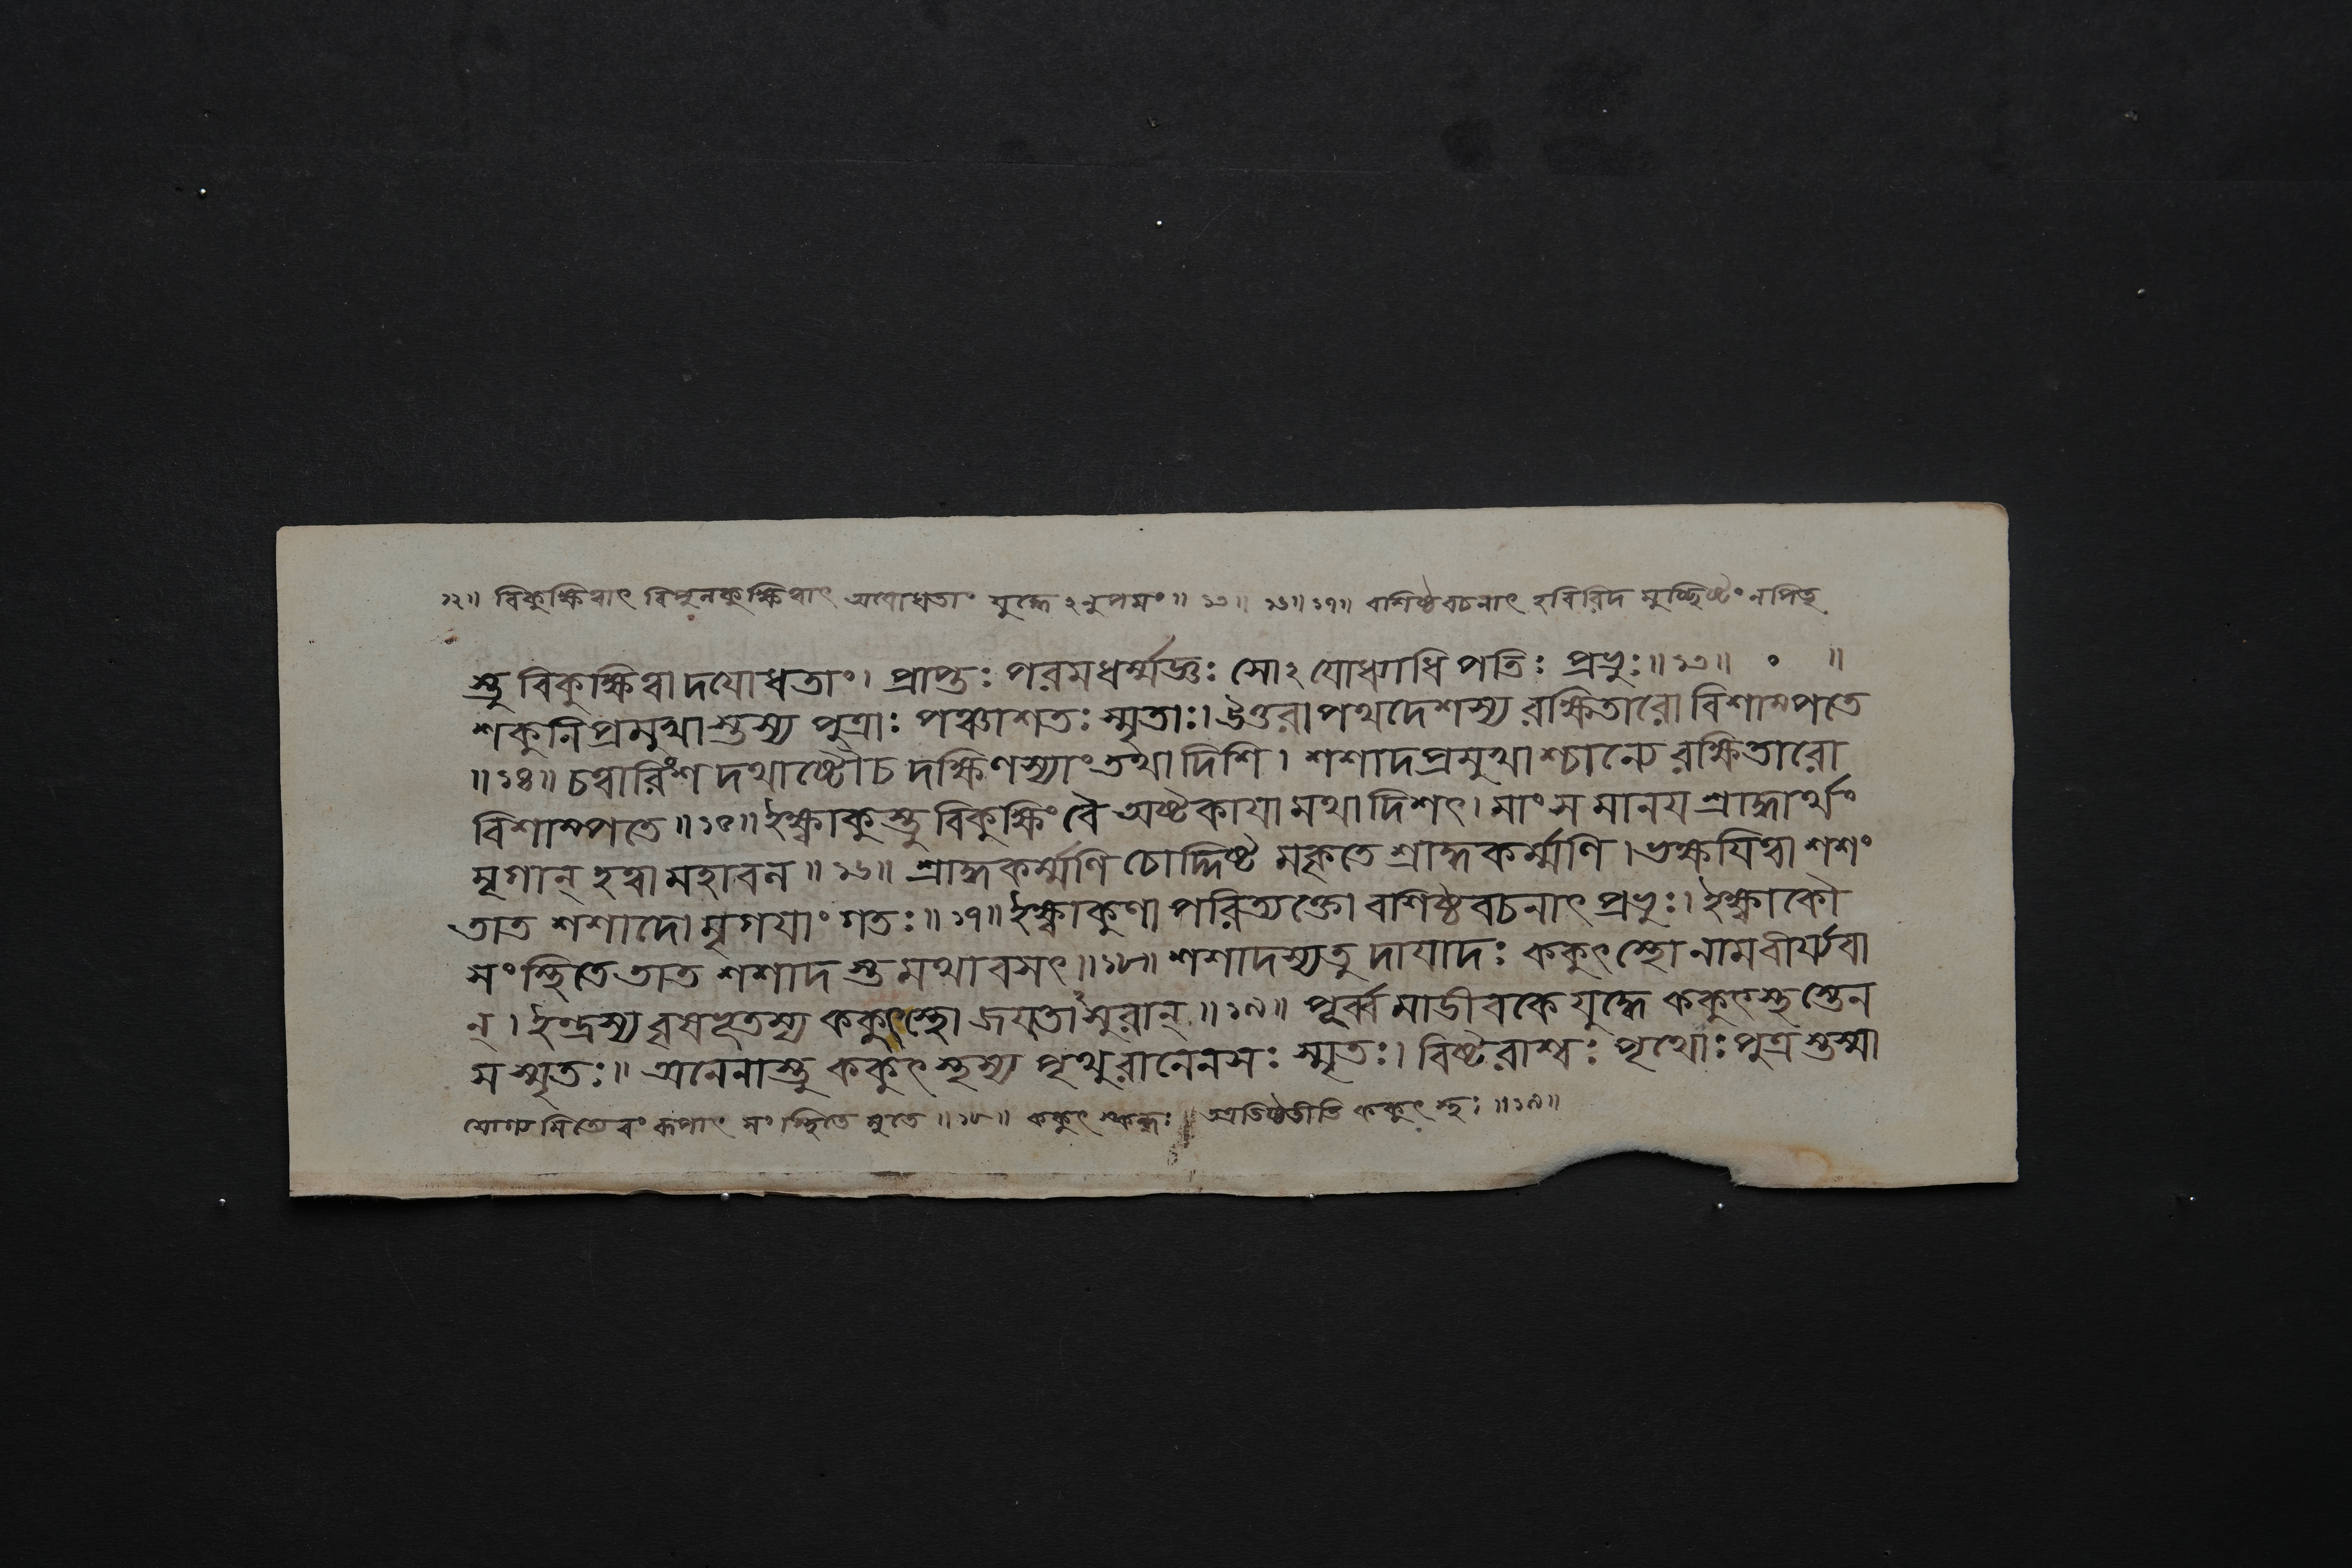 ১২॥ বিকুক্ষিত্বাৎ বিপুলকুক্ষিত্বাৎ অযোধতাং যুদ্ধেঽনুপমং॥ ১৩॥ ১৬॥ ১৭॥ বশিষ্ঠবচনাৎ হবিরিদ মুচ্ছিষ্টং নপিতৃ
স্তু বিকুক্ষিত্বাদযোধতাং। প্রাপ্তঃ পরমধর্ম্মজ্ঞঃ সোঽযোধ্যাধিপতিঃ প্রভুঃ॥১৩॥ ॰ ॥
শকুনিপ্রমুখাস্তস্য পুত্রাঃ পঞ্চাশতঃ স্মৃতাঃ। উত্তরাপথদেশস্য রক্ষিতারো বিশাম্পতে
॥১৪॥ চত্বারিংশদথাষ্টৌচ দক্ষিণস্যাং তথা দিশি। শশাদপ্রমুখাশ্চান্যে রক্ষিতারো
বিশাম্পতে॥১৫॥ ইক্ষ্বাকুস্তু বিকুক্ষিং বৈ অষ্টকাযামথাদিশৎ। মাংসমানয শ্রাদ্ধার্থং
মৃগান্ হত্বা মহাবল॥১৬॥ শ্রাদ্ধকর্ম্মণি চোদ্দিষ্ট মকৃতে শ্রাদ্ধকর্ম্মণি। ভক্ষযিত্বা শশং
তাত শশাদো মৃগযাং গতঃ॥১৭॥ ইক্ষ্বাকুণা পরিত্যক্তো বশিষ্ঠবচনাৎ প্রভুঃ। ইক্ষ্বাকৌ
সংস্থিতে তাত শশাদস্তু মথাবসৎ॥১৮॥ শশাদস্যতু দাযাদঃ ককুৎস্থো নামবীর্য্যবা
ন্। ইন্দ্রস্য বৃষভূতস্য ককুৎস্থো জযতাসুরান্॥১৯॥ পূর্ব্বমাডীবকে যুদ্ধে ককুৎস্থস্তেন
স স্মৃতঃ॥ অনেনাস্তু ককুৎস্থস্য পৃথুরানেনসঃ স্মৃতঃ। বিষ্টরাশ্বঃ পৃথোঃ পুত্রস্তস্মা
যোগ্যমিত্যেবং রূপাৎ সংস্থিতে মৃতে॥১৮॥ ককুৎ স্কন্ধঃ অতিষ্ঠতীতি ককুৎস্থঃ॥১৯॥